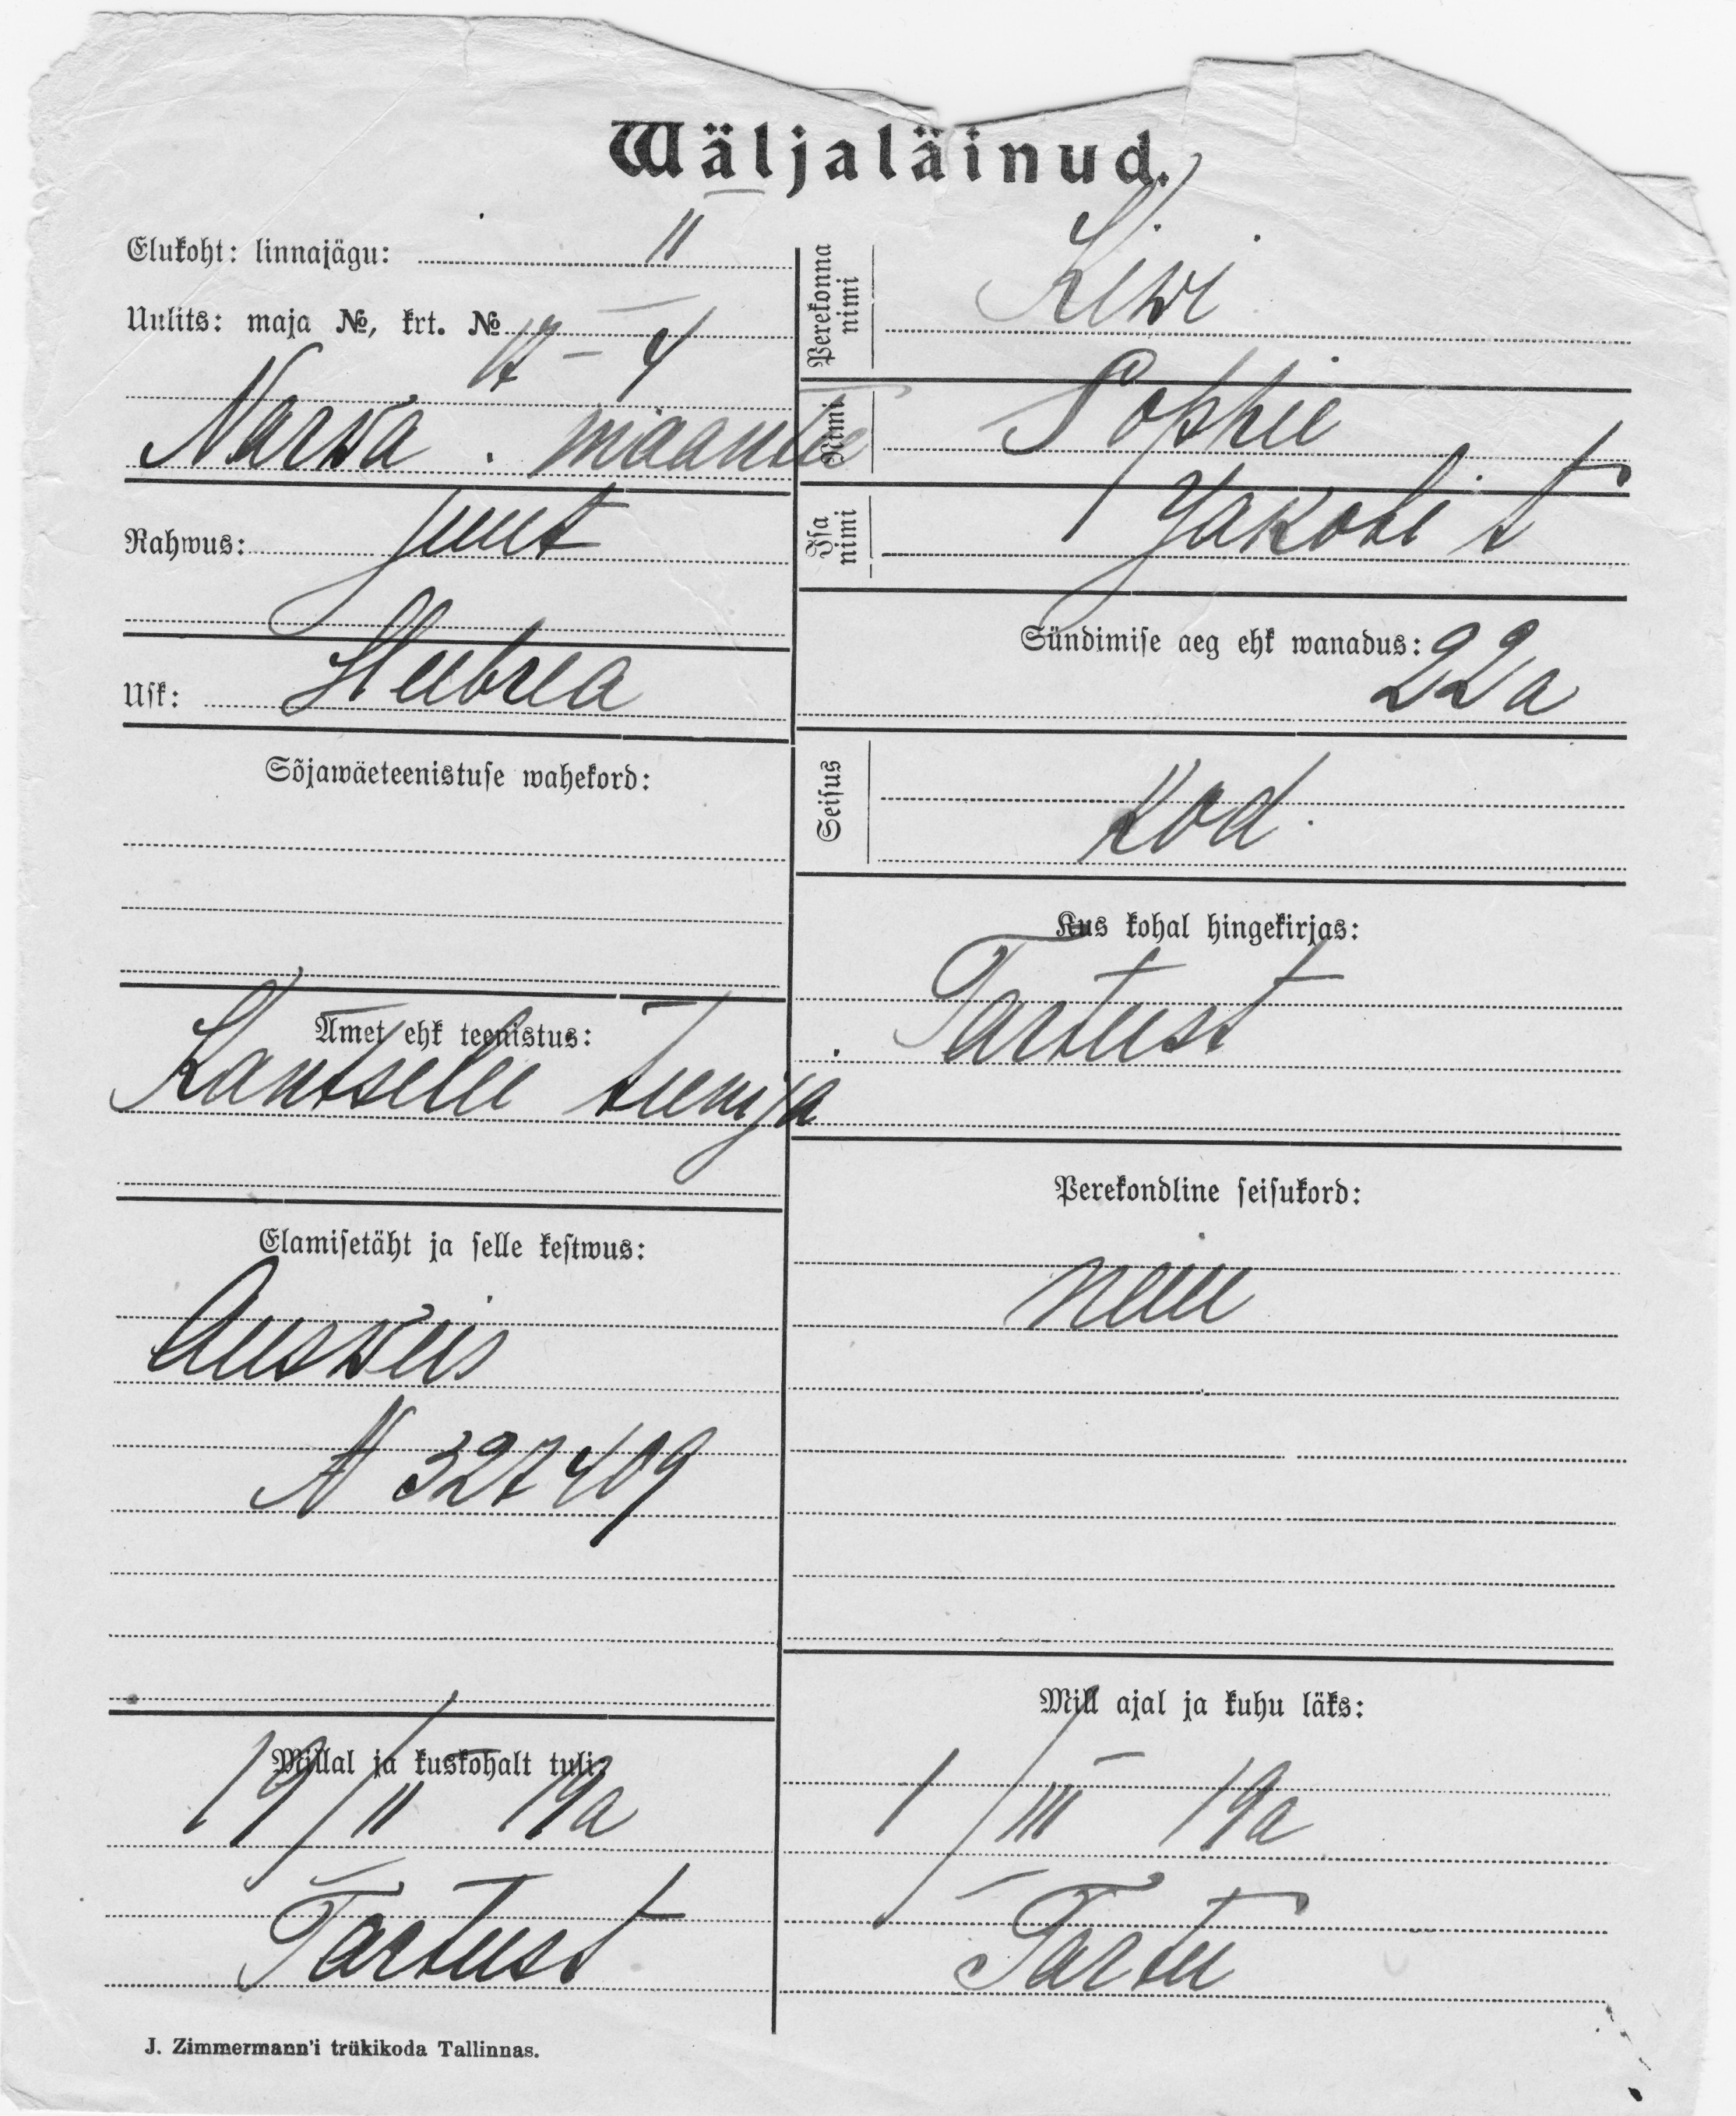 Wäljaläinud.
Elukoht: linnajägu: II
Uulits: maja №, krt. № 17 – 4
Narwa maantee
Rahwus: juut
Usk: Heebrea
Sõjawäeteenistuse wahekord:
Amet ehk teenistus:
Kantselei teenija
Elamisetäht ja selle kestwus:
Ausweis
N 327409
Millal ja kuskohalt tuli:
19/II 19a
Tartust
Perekonna nimi Kiwi
Nimi Sophie
Isa nimi Jakobi t
Sündimise aeg ehk wanadus: 22a
Seisus Kod.
Kus kohal hingekirjas:
Tartust
Perekondline seisukord:
neiu
Mill ajal ja kuhu läks:
1/III 19a
Tartu
J. Zimmermann'i trükikoda Tallinnas.